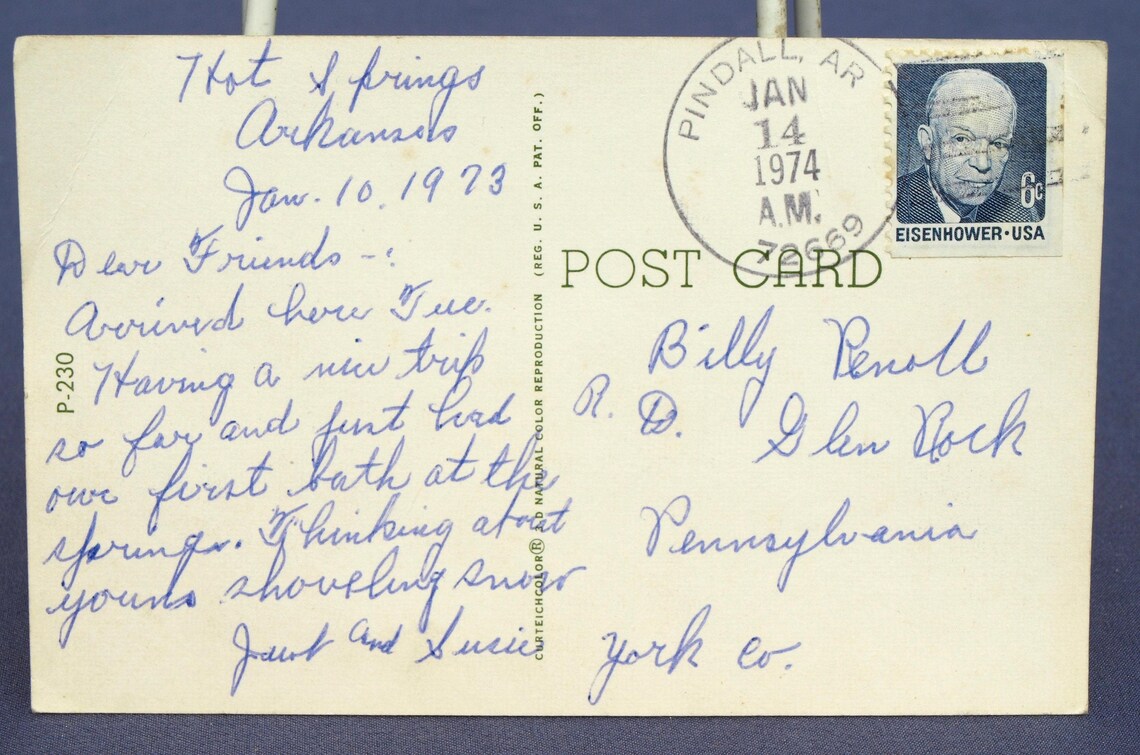 Hot Springs
Arkansas
Jan. 10, 1973
Dear Friends -:
Arrived here Tue.
Having a nice trip
so far and just had
our first bath at the
springs. Thinking about
youns shoveling snow
and Susie
P-230
CURTEICHCOLOR® 3-D NATURAL COLOR REPRODUCTION (REG. U. S. A. PAT. OFF.)
PINDALL, AR
JAN
14
1974
A.M.
72669
6c
EISENHOWER·USA
POST CARD
Billy
R. D. Glen Rock
Pennsylvania
York Co.